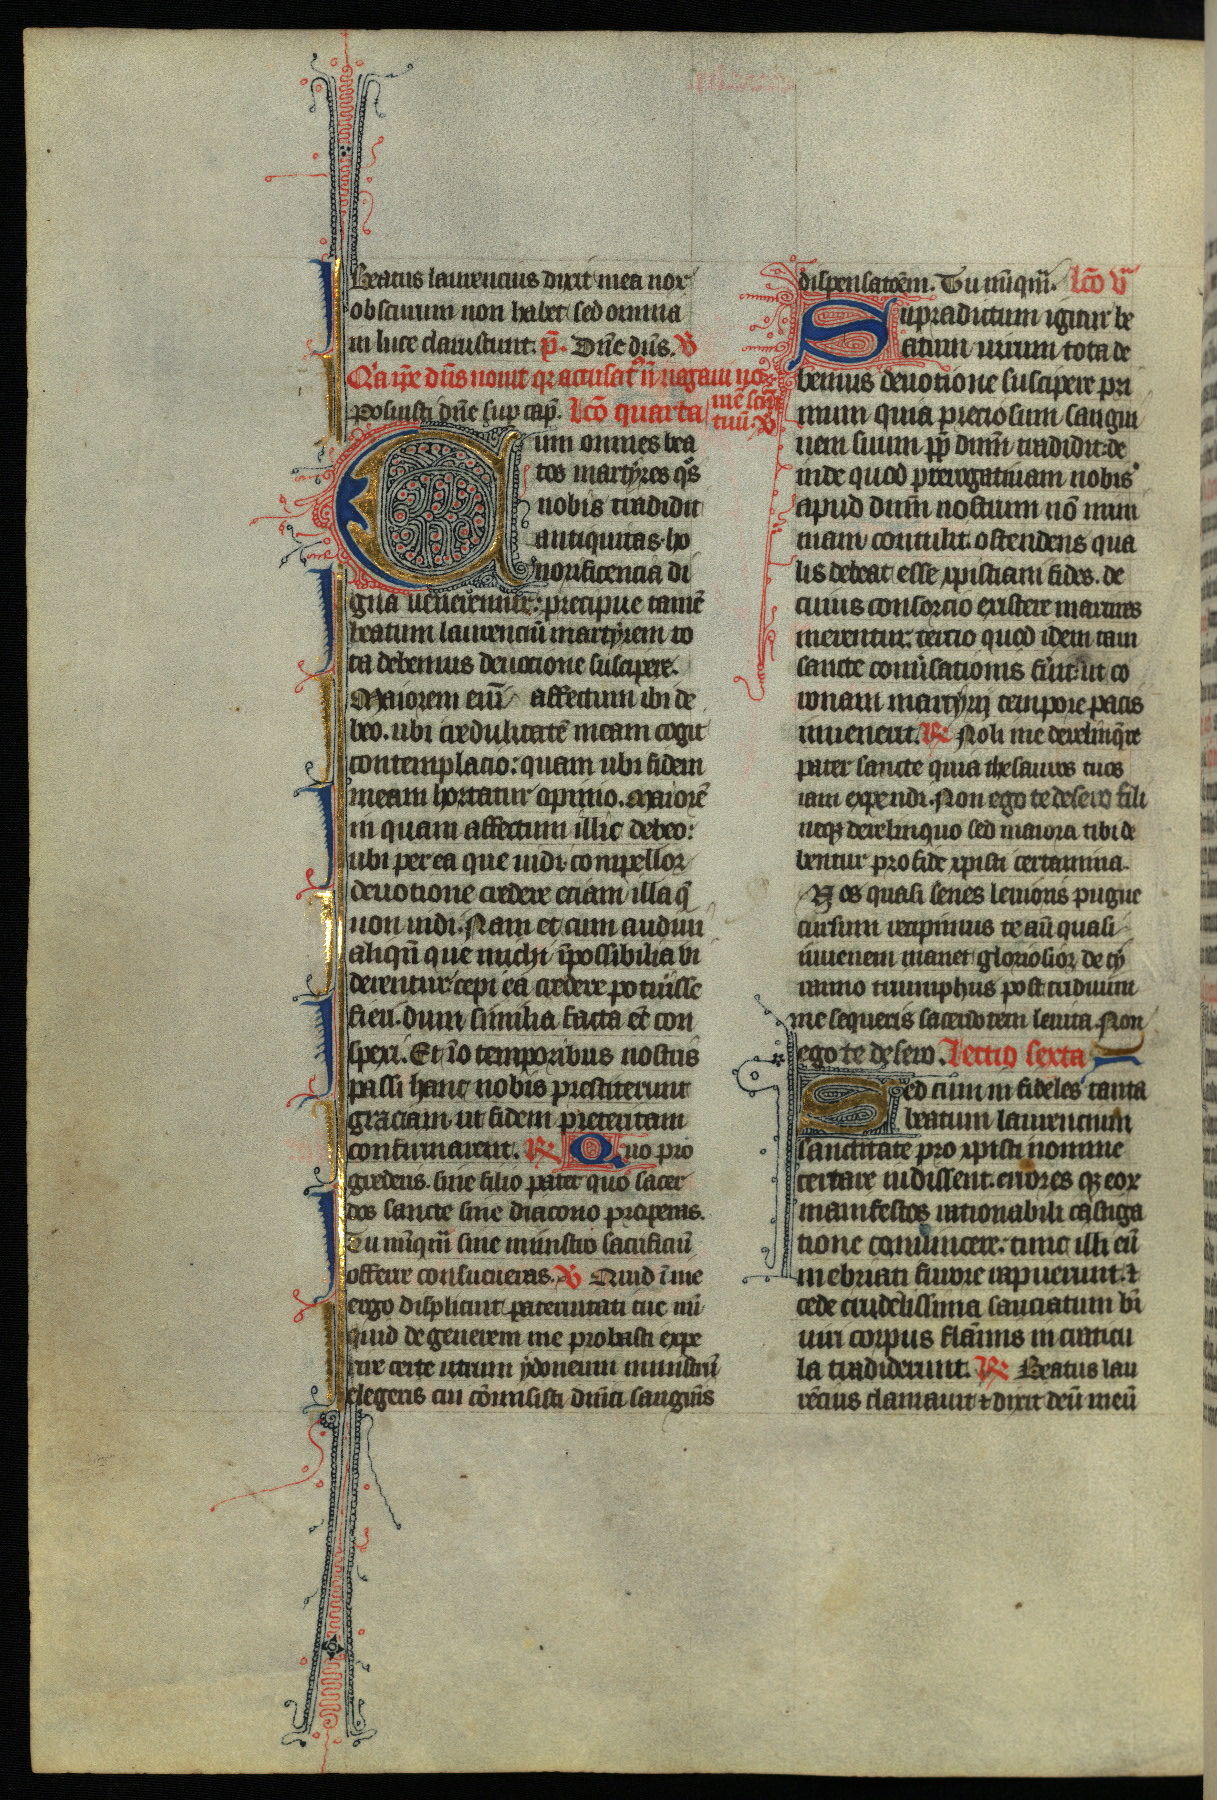 Beatus laurencius dixit mea nox
obscurum non habet sed omnia
in luce clarescunt. p̄. Dn̄e dn̄s. V
Q̄a ip̄e dn̄s nouit qr accusatꝰ n̄ negaui no
posuisti dn̄e sup cap̄. lc̄o quarta
men̄ sc̄m
tuū. V
Cum omnes bea
tos martẏres q̄s
nobis tradidit
antiquitas ho
norificencia di
gna ueneremur: precipue tamē
beatum laurenciū martẏrem to
ta debemus deuotione suscipere.
Maiorem eni affectum ibi de
beo. ubi credulitatē meam cogit
contemplacio: quam ubi fidem
meam hortatur opinio. Maiorē
in quam affectum illic debeo:
ubi per ea que uidi compellor
deuotione credere eciam illa q̄
non uidi. Nam et cum audiui
aliqn̄ que michi īpossibilia vi
derentur: cepi ea credere potuisse
fieri. dum similia facta eē con
spexi. Et iō temporibus nostris
passi hanc nobis prestiterunt
graciam ut fidem preteritam
confirmarent. R Quo pro
grederis. sine filio pater quo sacer
dos sancte sine diacono properas.
Tu nūqm̄ sine ministro sacrificiū
offerre consueueras. V Quid ī me
ergo displicuit paternitati tue nū
quid degenerem me probasti expe
rire certe utrum ẏdoneum ministrū
elegeris cui cōmisisti dn̄ici sanguīs
dispensatōem. Tu nūqm̄. lc̄o v̄
Supradictum igitur be
atum uirum tota de
bemus deuotione suscipere pri
mum quia preciosum sangui
nem suum pp̄ dn̄m tradidit: de
inde quod prerogatiuam nobis
apud dn̄m nostrum nō mini
mam contulit. ostendens qua
lis debeat esse xpistiani fides. de
cuius consorcio existere martires
merentur. tercio quod idem tam
sancte conũsationis fũit: ut co
ronam martẏrij tempore pacis
inueneut. R Noli me derelinq̄re
pater sancte quia thesauros tuos
iam expendi. Non ego te desero fili
neqꝫ derelinquo sed maiora tibi de
bentur pro fide xpisti certamina.
V Nos quasi senes leuioris pugne
cursum recipimus te aū quasi
iuuenem manet gloriosior de tẏ
ranno triumphus post triduum
me sequeris sacerdotem leuita. Non
ego te desero. Lectio sexta
Sed cum infideles tanta
beatum laurencium
sanctitate pro xpisti nomine
certare uidissent. errores qꝫ eoꝝ
manifestos rationabili castiga
tione conuincere. tunc illi eū
inebriati furore rapuerunt. ⁊
cede crudelissima sauciatum bī
uiri corpus flāmis in craticu
la tradiderunt. R Beatus lau
rēcius clamauit ⁊ dixit deū meū